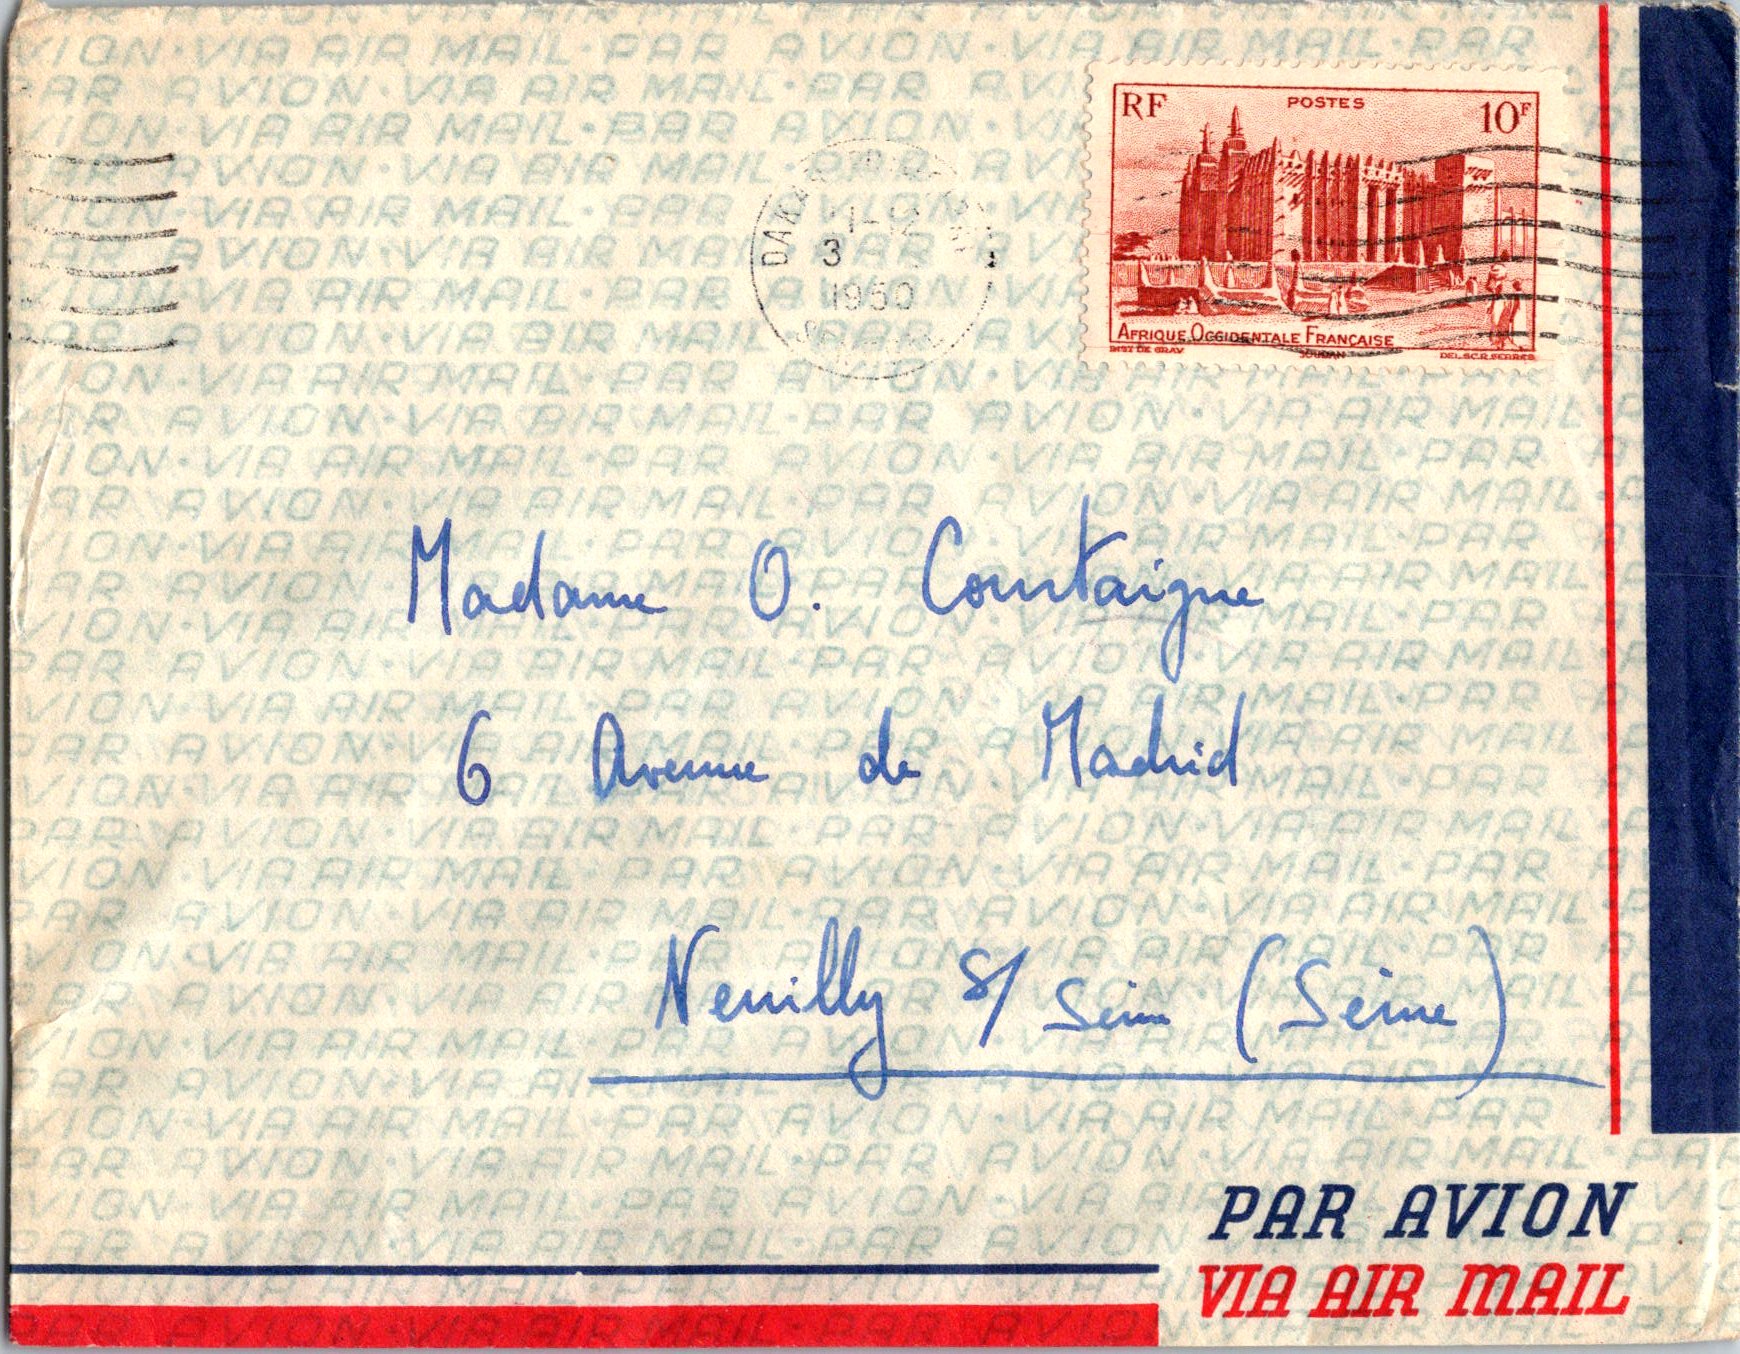 RF POSTES 10F
AFRIQUE OCCIDENTALE FRANÇAISE
INST DE GRAV SOUDAN DEL.SC.R.SERRES
DAKAR
3
1950
Madame O. Courtaigne
6 Avenue de Madrid
Neuilly s/ Seine (Seine)
PAR AVION
VIA AIR MAIL